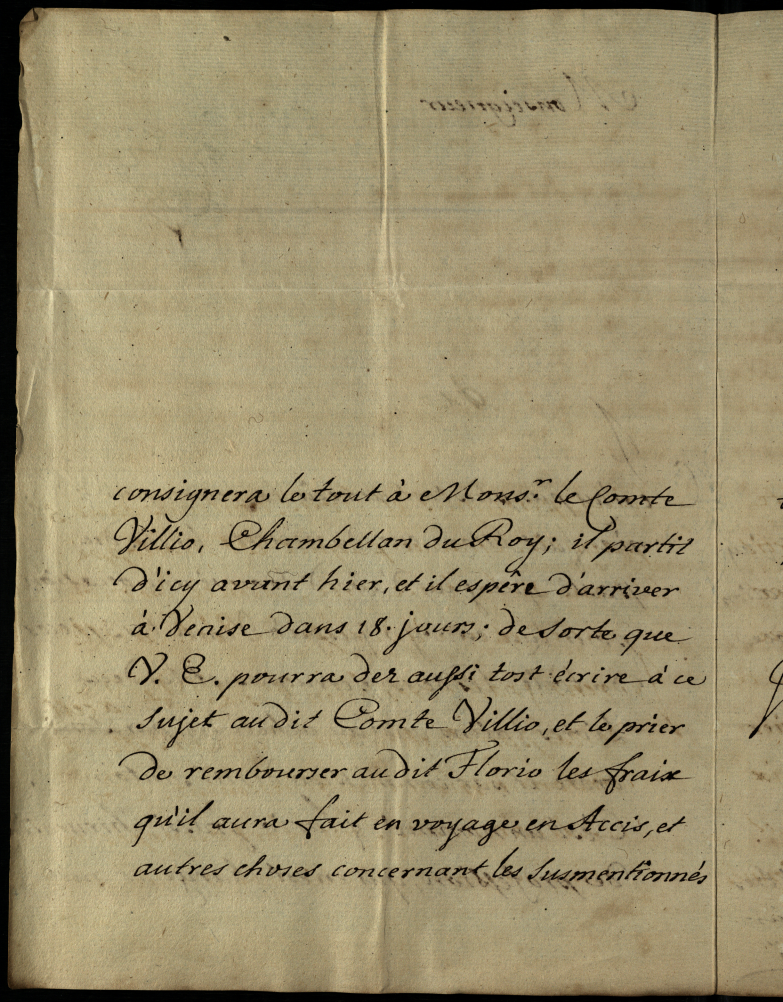 consignera le tout à Mons.r le Comte
Villio, Chambellan du Roy; il partit
d'icy avant hier, et il espêre d'arriver
à Venise dans 18. jours; de sorte que
V. E. pourra dez aussi tost écrire à ce
sujet au dit Comte Villio, et le prier
de rembourser au dit Florio les fraix
qu'il aura fait en voyage en Accis, et
autres choses concernant les susmentionnés